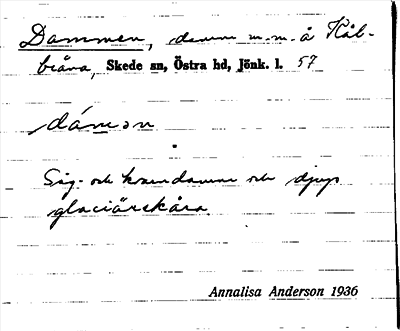 Dammen, damm m.m. å Kål-
bråna, Skede sn, Östra hd, Jönk. l. 57
dámən
Såg- och kvarndamm och djup
glaciärskåra.
Annalisa Anderson 1936